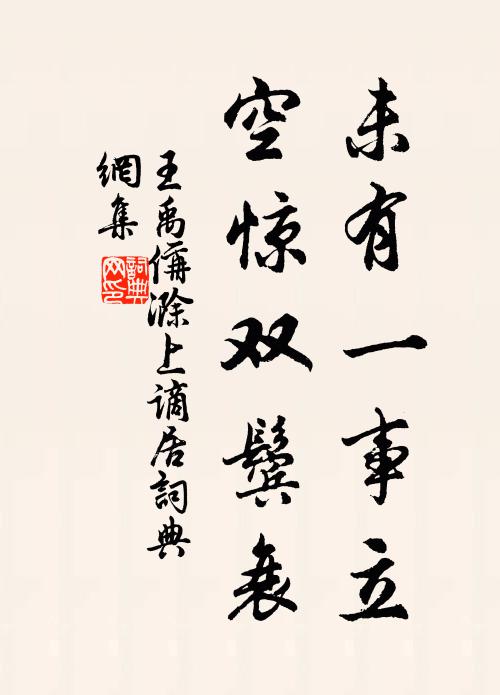 未有一事立
空惊双鬓衰
王禹偁滁上谪居詞典
網集
詞典
网印